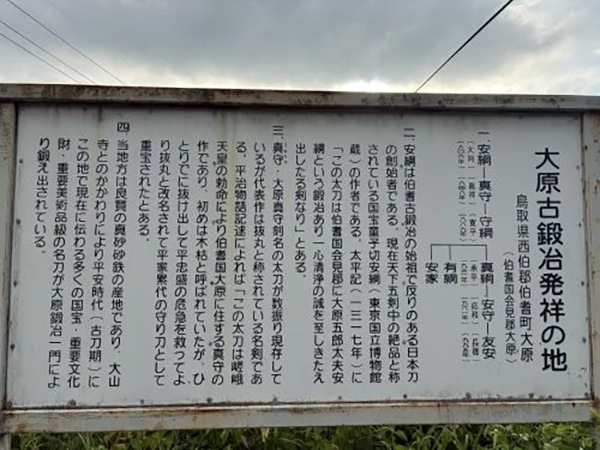 大原古鍛冶発祥の地
鳥取県西伯郡伯耆町大原
（伯耆国会見郡大原）
一、安綱―真守―守綱
真綱―安守―友安
有綱
安家
二、安綱は伯耆古鍛冶の始祖で反りのある日本刀
の創始者である。現在天下五剣中の絶品と称
されている国宝童子切安綱（東京国立博物館
蔵）の作者である。太平記（一三一七年）に
「この太刀は伯耆国会見郡に大原五郎太夫安
綱という鍛冶あり一ル清浄の誠を至しきたえ
出したる剣なり」とある。
三、真守・大原真守刻名の太刀が数振り現存して
いるが代表作は抜丸と称されている名剣であ
る。平治物語記述によれば「この太刀は嵯峨
天皇の勅命により伯耆国大原に住する真守の
作であり、初めは木枯と呼ばれていたが、ひ
とりでに抜け出して平忠盛の危急を救ってよ
り抜丸と改名されて平家累代の守り刀として
重宝されたとある。
四、当地方は良質の真砂砂鉄の産地であり、大山
寺とのかかわりにより平安時代（古刀期）に
この地で現在に伝わる多くの国宝・重要文化
財・重要美術品級の名刀が大原鍛冶一門によ
り鍛え出されている。